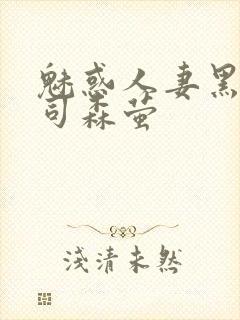 魅惑人妻黑
司森萤
浅清未然